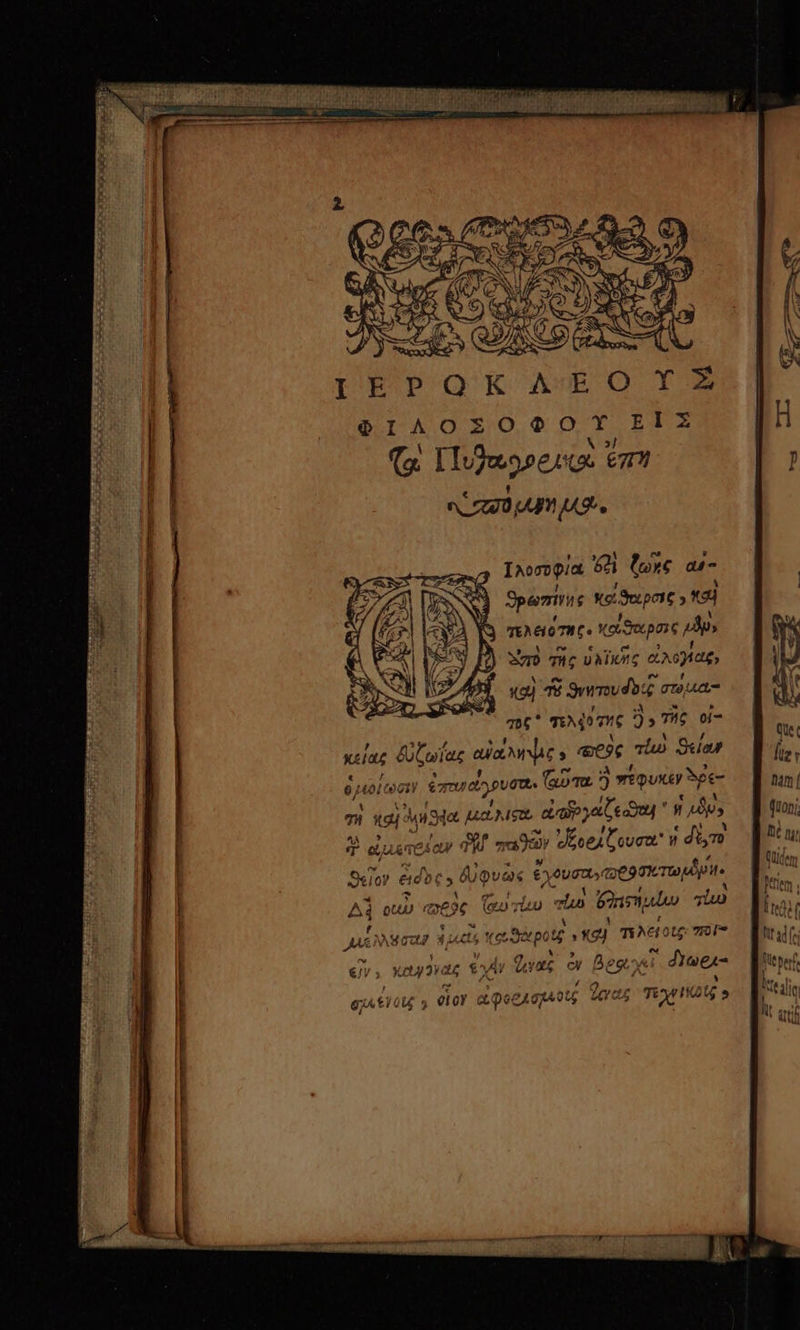 2
ΙΕΡΟΚΛΕΟΥΣ
ΦΙΛΟΣΟΦΟΥ ΕΙΣ
τὰ Πυθαγορεια ἔπη
ὑπόμνημα.
Φιλοσοφία ἐστὶ ζωῆς ἀν-
θρωπίνης κάθαρσις, καὶ
τελειότης. κάθαρσις μὲν,
ἀπὸ τῆς ὑλικῆς ἀλογίας,
καὶ τοῦ θνητουδοῦς σώμα-
τος· τελειότης δὲ, τῆς οἰ-
κείας εὐζωίας ἀνάληψις, πρὸς τὴν θείαν
ὁμοίωσιν ἐπανάγουσα. ταῦτα δὲ πέφυκεν ἀρε-
τὴ καὶ ἀλήθεια μάλιστα ἀπεργάζεσθαι· ἡ μὲν,
τὴν ἀμετρίαν τῶν παθῶν ἐξορίζουσα· ἡ δὲ, τὸ
θεῖον εἶδος, εὐφυῶς ἔχουσα, προσκτωμένη.
Δεῖ οὖν πρὸς ταύτην τὴν ἐπιστήμην τὴν
μέλλουσαν ἡμᾶς καθαροὺς, καὶ τελείους ποι-
εῖν, κανόνας ἔχειν τινας ἐν βραχεῖ διωρι-
σμένους, οἷον ἀφορισμούς τινας τεχνικοὺς,
H
P
que
nam
quoni
quidem